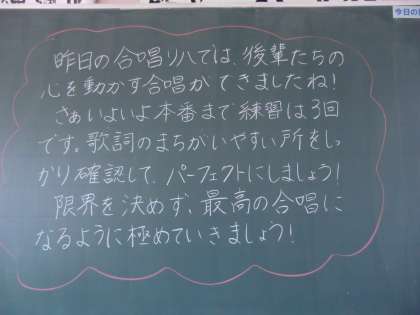 今日の
昨日の合唱リハでは、後輩たちの
心を動かす合唱ができましたね!
さぁいよいよ本番まで練習は3回
です。歌詞のまちがいやすい所をしっ
かり確認して、パーフェクトにしましょう!
限界を決めず、最高の合唱に
なるように極めていきましょう!